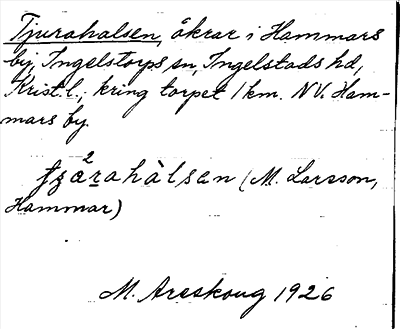 Tjurahalsen, åkrar i Hammars
by, Ingelstorps sn, Ingelstads hd,
Krist. l., kring torpet 1 km. NV. Ham-
mars by.
2
rahàlsen (M. Larsson,
Hammar)
M. Areskoug 1926